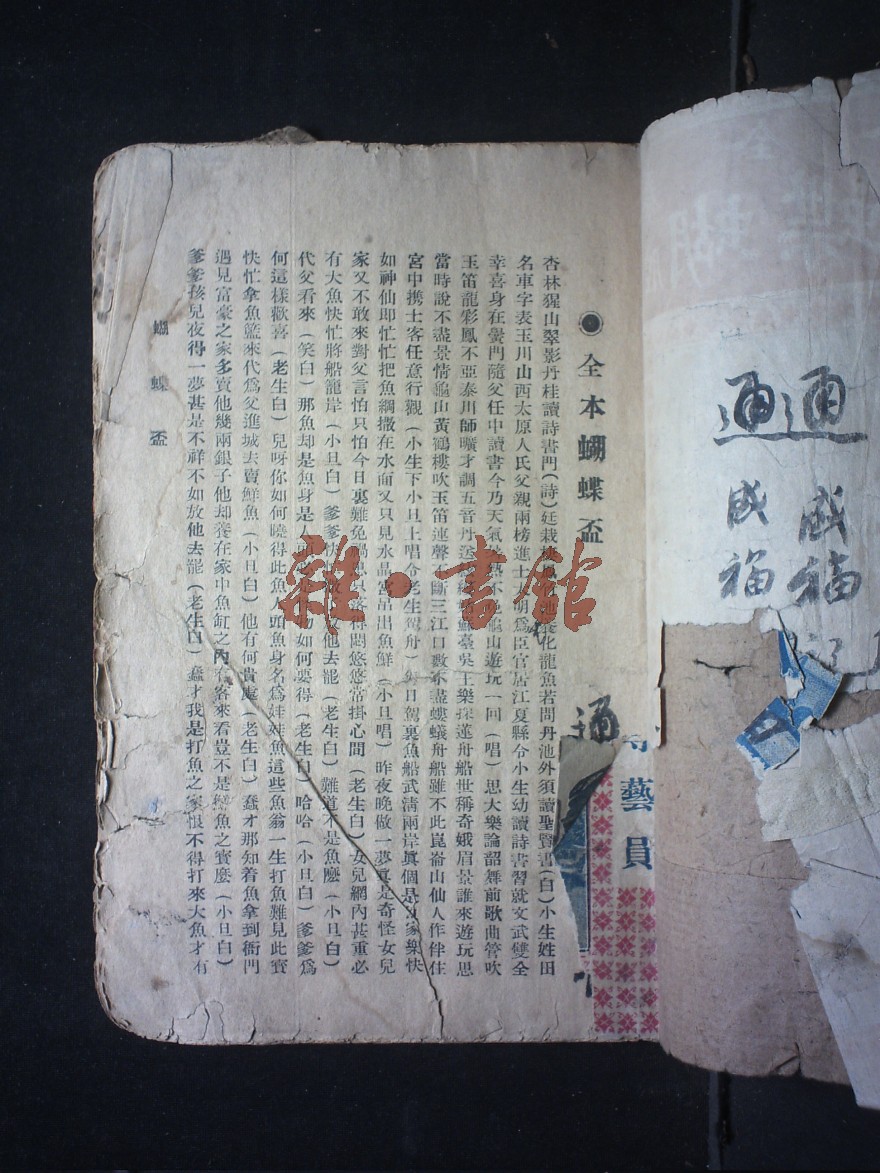 ●全本蝴蝶盃
杏林猩山翠影丹桂讀詩書門(詩)廷栽 化龍魚若問丹池外須讀聖賢書(白)小生姓田
名車字表玉川山西太原人氏父親兩榜進士 明爲臣官居江夏縣令小生幼讀詩書習就文武雙全
幸喜身在黌門隨父任中讀書今乃天氣 熱不 龜山遊玩一回(唱)思大樂論韶舞前歌曲管吹
玉笛龍彩鳳不亞泰川師曠才調五音丹 蘇臺吳王樂採蓮舟船世稱奇娥眉景誰來遊玩思
當時說不盡景情龜山黃鶴樓吹玉笛連聲不斷三江口數不盡螻蟻舟船雖不此崑崙山仙人作伴住
宮中携士客任意行觀(小生下小旦上唱令老生駕舟)每日駕裏魚船武清兩岸眞個是 家樂快
如神仙即忙忙把魚網撒在水面又只見水晶宮吊出魚鮮(小旦唱)昨夜晚做一夢眞是奇怪女兒
家又不敢來對父言怕只怕今日裏難免禍 悶悠悠常掛心間(老生白)女兒網內甚重必
有大魚快忙將船籠岸(小旦白)爹爹快 他去罷(老生白)難道不是魚麼(小旦白)
代父看來(笑白)那魚却是魚身是人頭 物如何要得(老生白)哈哈(小旦白)爹爹爲
何這樣歡喜(老生白)兒呀你如何曉得此魚人頭魚身名爲娃娃魚這些魚翁一生打魚難見此寶
快忙拿魚籃來代爲父進城去賣鮮魚(小旦白)他有何貴處(老生白)蠢才那知着魚拿到衙門
遇見富豪之家多賣他幾兩銀子他却養在家中魚缸之內有客來看豈不是 魚之寶麼(小旦白)
爹爹孩兒夜得一夢甚是不祥不如放他去罷(老生白)蠢才我是打魚之家恨不得打來大魚才有
蝴蝶盃
雜·書館
通
藝員
通通
咸福
咸福